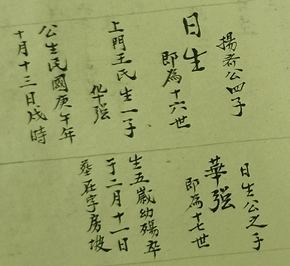 揚喬公四子
日生
即為十六世
上門王氏生一子
化十强
公生民國庚午年
十月十三日戌時
日生公之子
華强
即為十七世
生五歲幼殤卒
于二月十一日
塟在字房坡